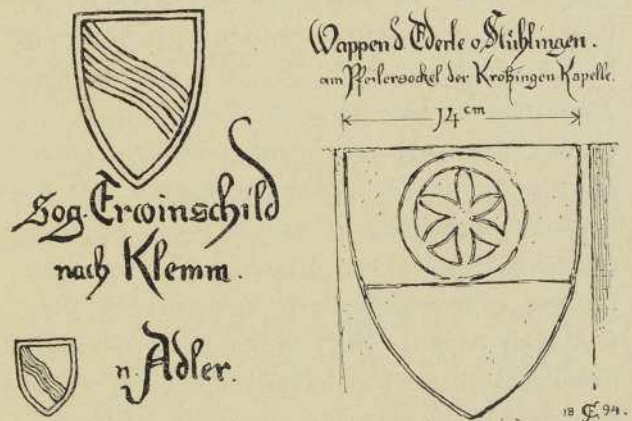 sog. Erwinschild
nach Klemm.
n. Adler.
Wappen d. Ederle v. Stühlingen.
am Pfeilersockel der Krotzingen Kapelle.
14 cm
18 E 94.